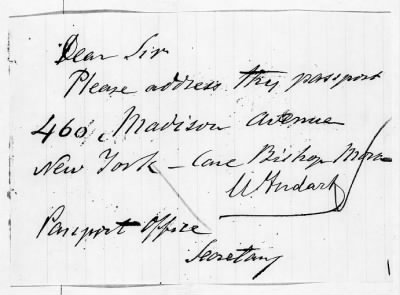 Dear Sir
Please address this passport
460, Madison Avenue
New York – Care Bishop
Passport Office
Secretary